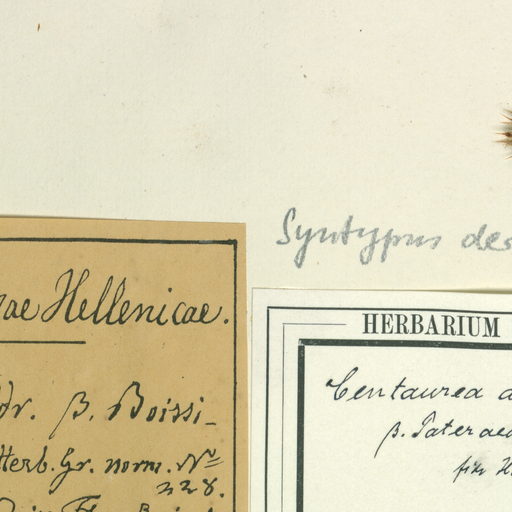 Syntypus des
ae Hellenicae.
dr. β. Boissi-
Herb. Gr. norm. Nº
228.
HERBARIUM
Centaurea a
β. Paterae